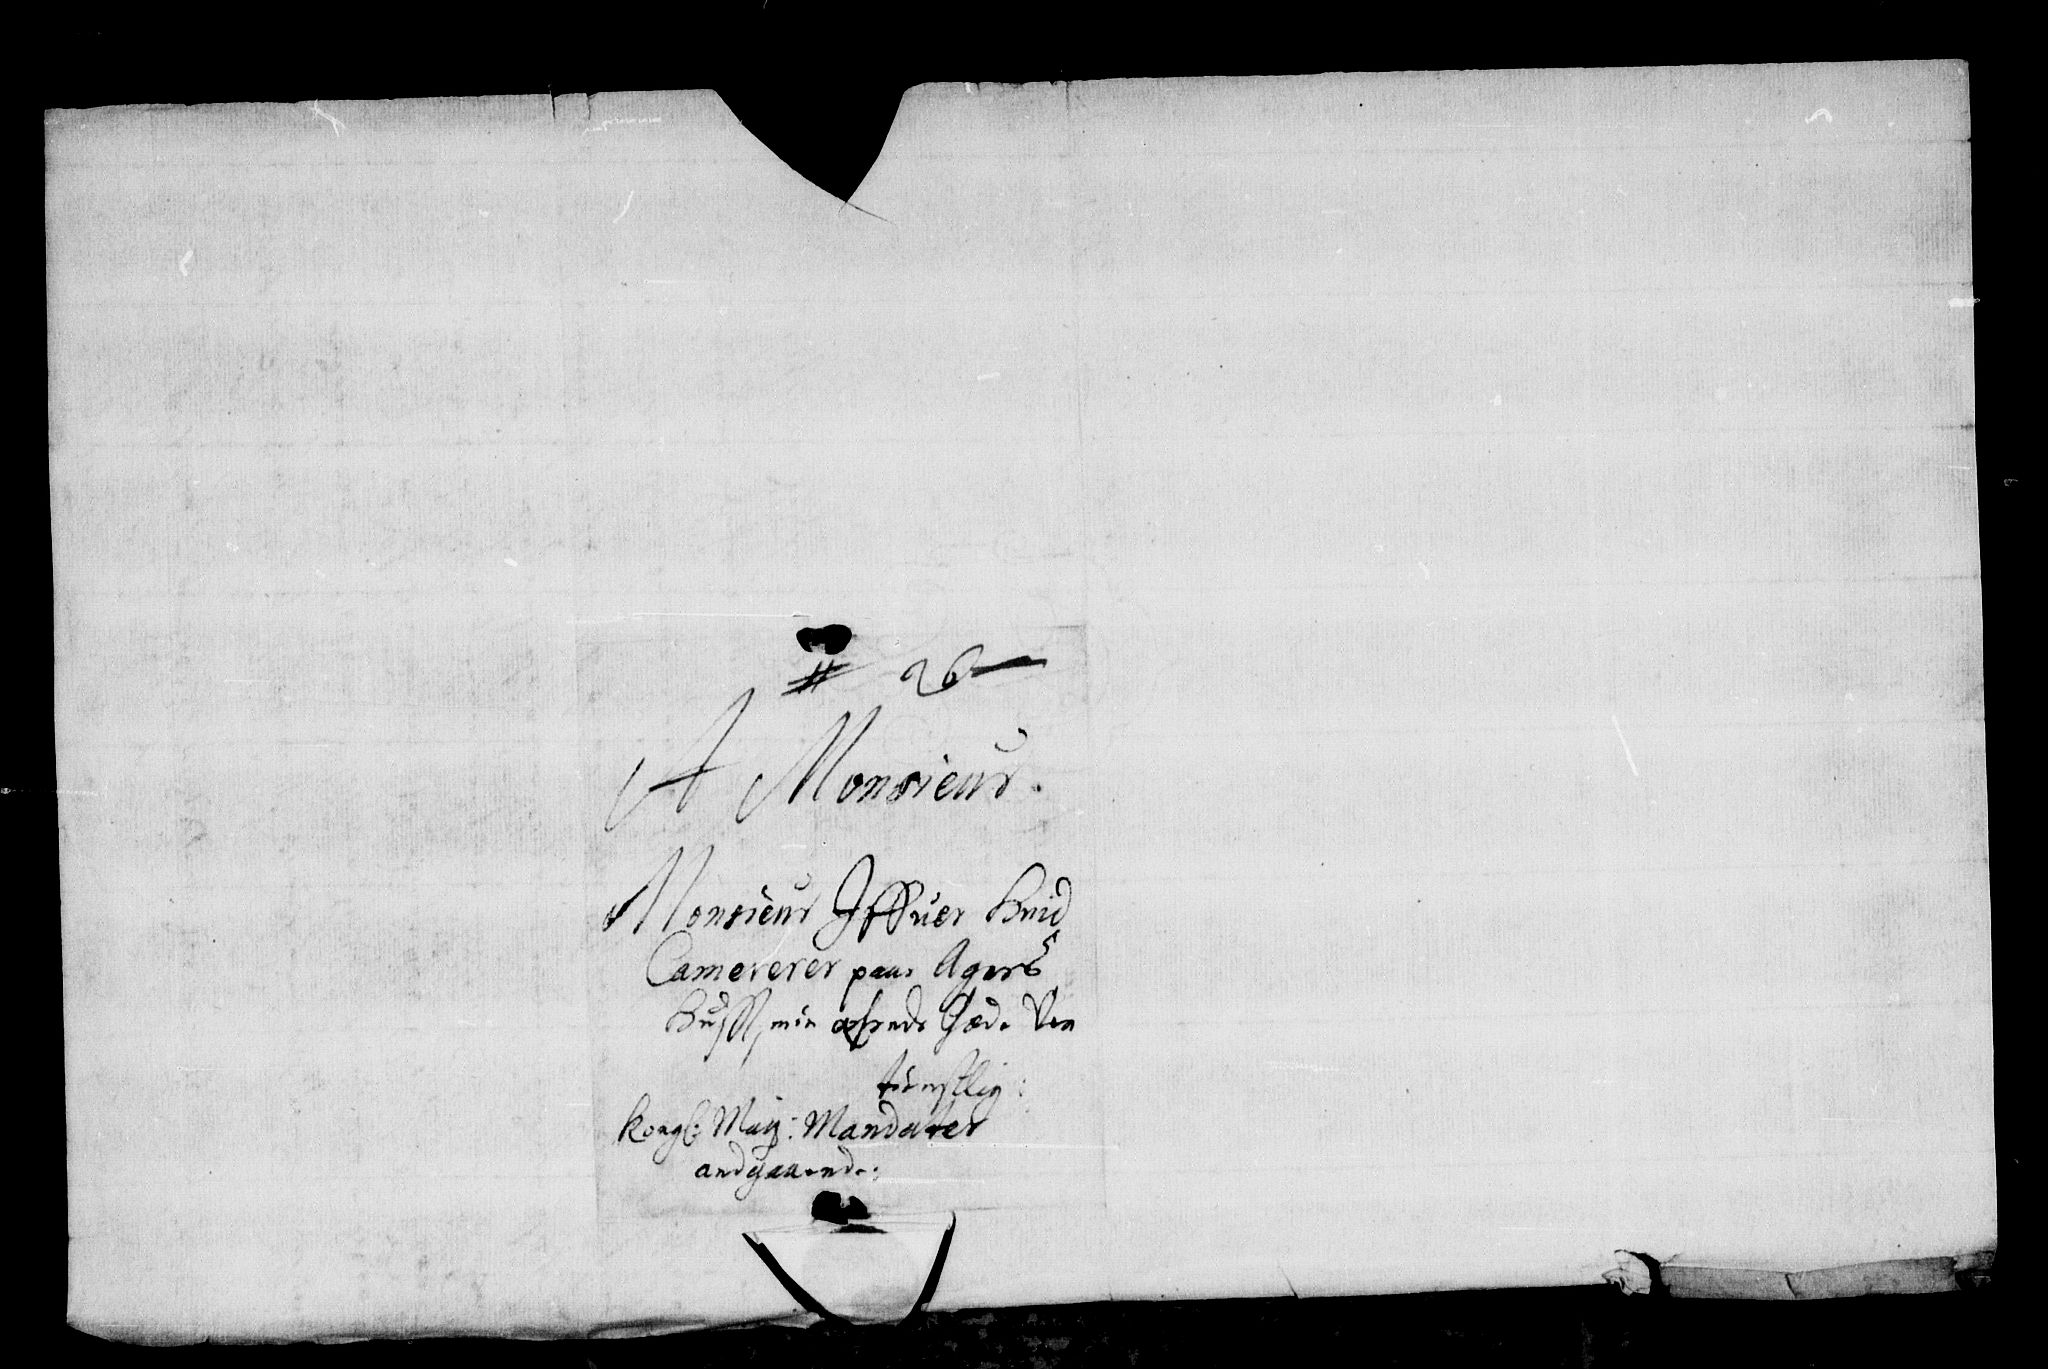 # 26
A Monsieur.
Monsieur Iffuer Huid
Camererer paa Agers
Huss, min ærende Gode Ven
tienstlig:
Kongl: May: Mandater
andgaaende: